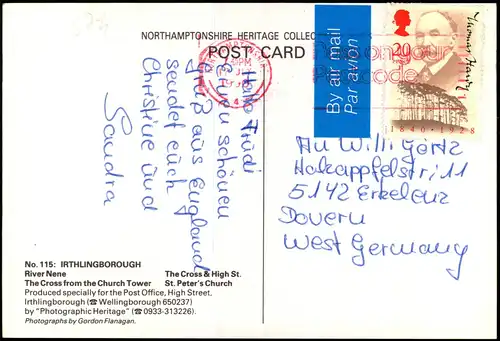 NORTHAMPTONSHIRE HERITAGE COLLEC
POST CARD
By air mail
Par avion
20
Thomas Hardy
1840·1928
Hallo Trudi
Einen schönen
Gruß aus England
sendet euch
Christine und
Sandra
An Willi Görtz
Holzappfelstr. 11
5142 Erkelenz
Dovern
West Germany
No. 115: IRTHLINGBOROUGH
River Nene The Cross & High St.
The Cross from the Church Tower St. Peter's Church
Produced specially for the Post Office, High Street,
Irthlingborough (☎ Wellingborough 650237)
by "Photographic Heritage" (☎ 0933-313226).
Photographs by Gordon Flanagan.